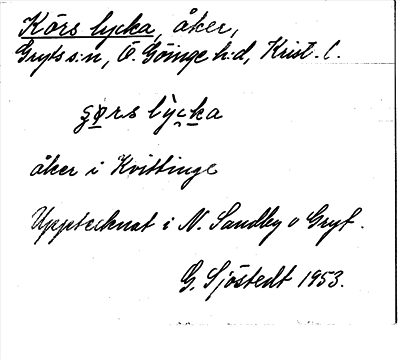 Körs lycka, åker,
Gryts s:n, Ö. Göinge h:d, Krist. l.
åker i Kvittinge
Upptecknat i N. Sandby o Gryt.
G. Sjöstedt 1953.